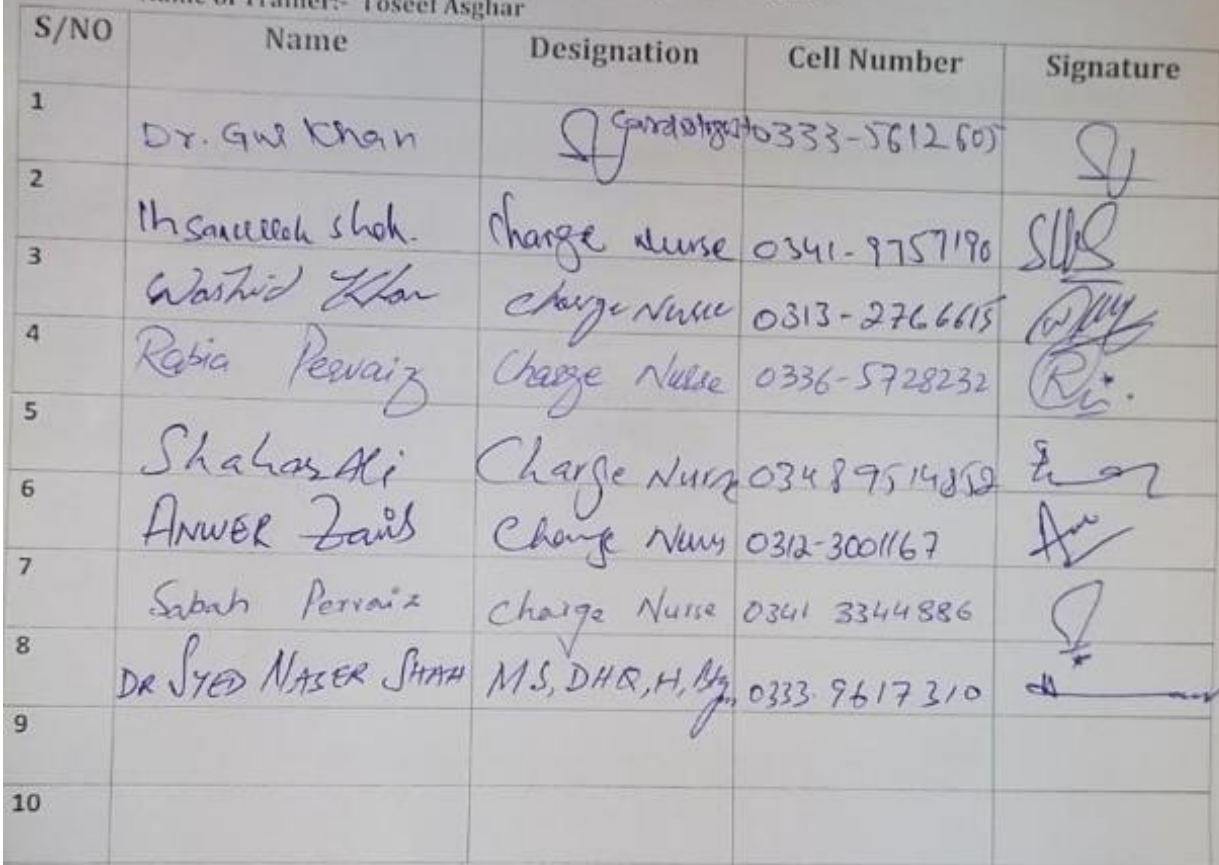 Name of Trainer:- Toseef Asghar
S/NO Name Designation Cell Number Signature
1 Dr. Gul Khan Cardiologist 0333-5612605
2 Ihsanullah Shah. Charge Nurse 0341-9757190
3 Washid Khan Charge Nurse 0313-2766615
4 Rabia Pervaiz Charge Nurse 0336-5728232
5 Shahas Ali Charge Nurse 03489514852
6 ANWER Charge Nurs 0312-3001167
7 Sabah Pervaiz Charge Nurse 0341 3344886
8 DR SYED NASER SHAH MS, DHQ, H, 0333.9617310
9
10